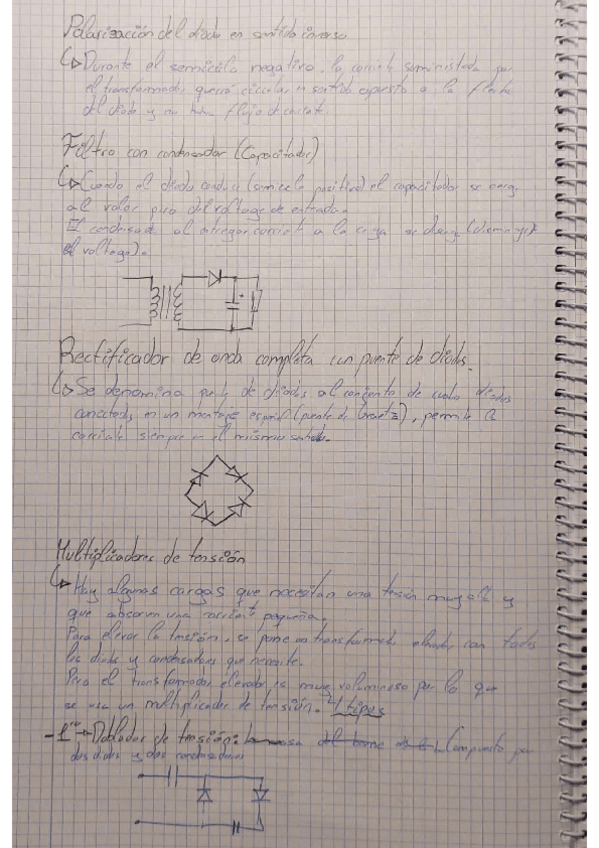 Polarización del diodo en sentido inverso
Durante el semiciclo negativo, la corriente suministrada por
el transformador querrá circular en sentido opuesto a la flecha
del diodo y no habrá flujo de corriente.
Filtro con condensador (Capacitador)
Cuando el diodo conduce (semiciclo positivo) el capacitador se carga
al valor pico del voltage de entrada.
El condensador al entregar corriente a la carga se descarga (disminuye
el voltage).
Rectificador de onda completa con puente de diodos.
Se denomina puente de diodos al conjunto de cuatro diodos
conectados en un montage especial (puente de Graetz), permite a
corriente siempre en el mismo sentido.
Multiplicadores de tensión
Hay algunas cargas que necesitan una tensión muy alta y
que absorven una corriente pequeña.
Para elevar la tensión, se pone un transformador elevador con todos
los diodos y condensadores que necesite.
Pero el transformador elevador es muy voluminoso por lo que
se usa un multiplicador de tensión. 4 tipos
- 1º → Doblador de tensión: Compuesto por
dos diodos y dos condensadores